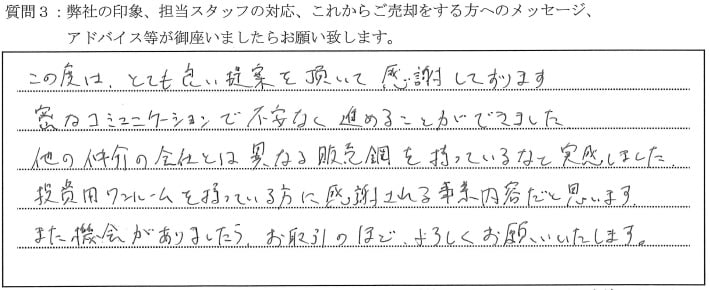 質問3：弊社の印象、担当スタッフの対応、これからご売却をする方へのメッセージ、
アドバイス等が御座いましたらお願い致します。
この度は、とても良い提案を頂いて感謝しております
密なコミュニケーションで不安なく進めることができました
他の仲介の会社とは異なる販売網を持っているなと実感しました。
投資用ワンルームを持っている方に感謝される事業内容だと思います。
また機会がありましたら、お取引のほど、よろしくお願いいたします。